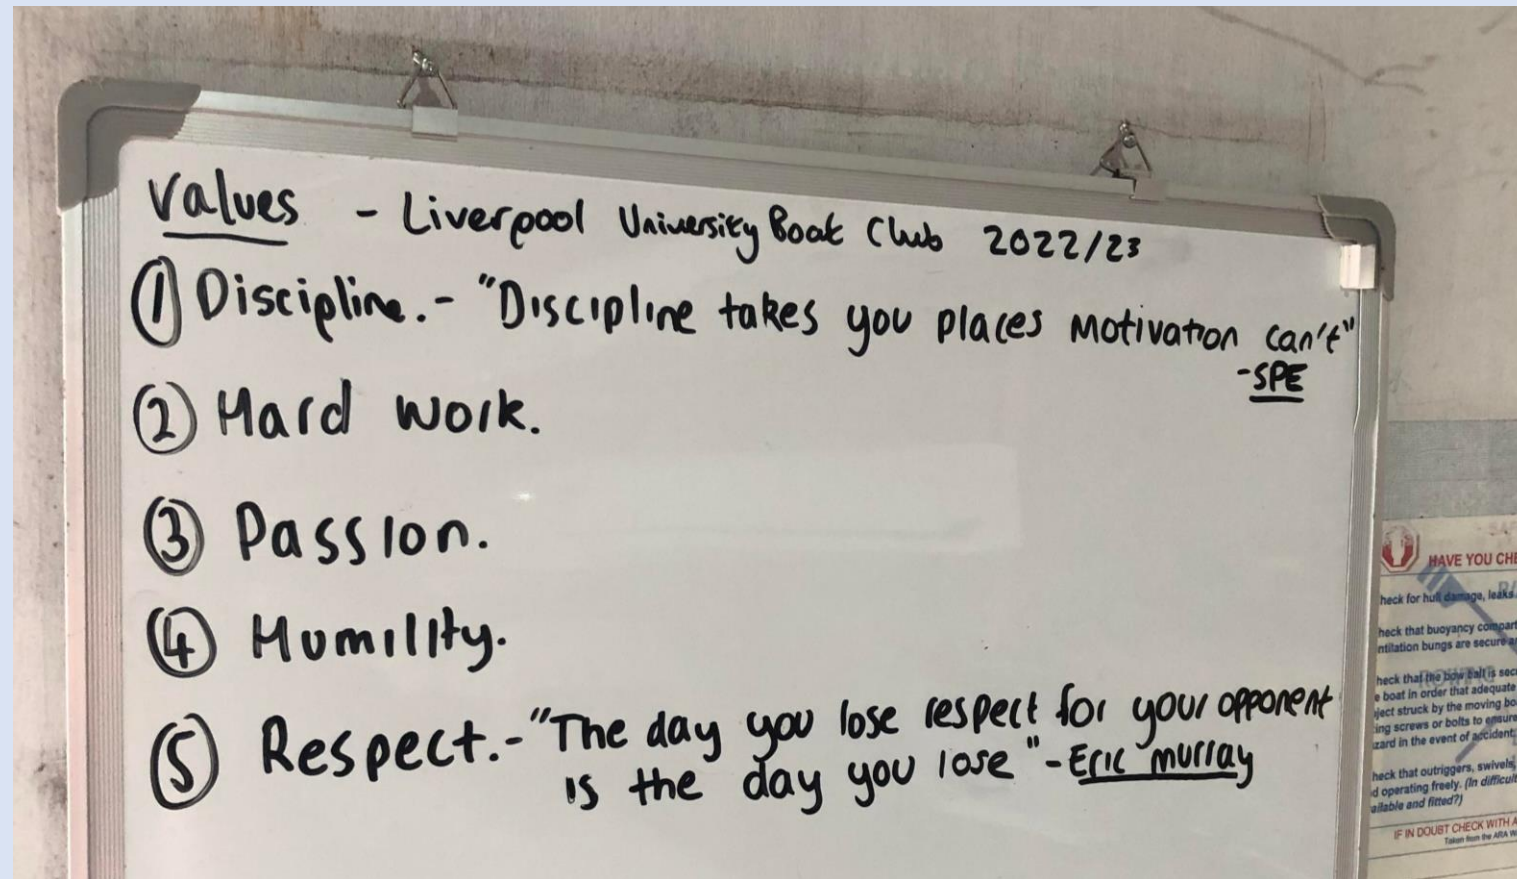 Values - Liverpool University Boat Club 2022/23
① Discipline. - "Discipline takes you places motivation can't"
- SPE
② Hard work.
③ Passion.
④ Humility.
⑤ Respect. - "The day you lose respect for your opponent
is the day you lose" - Eric Murray
HAVE YOU CHE
heck for hull damage, leaks
heck that buoyancy compart
ntilation bungs are secure a
heck that the bow ball is sec
e boat in order that adequate
ject struck by the moving bo
ing screws or bolts to ensure
zard in the event of accident
heck that outriggers, swivels,
d operating freely. (In difficult
ailable and fitted?)
IF IN DOUBT CHECK WITH A
Taken from the ARA W